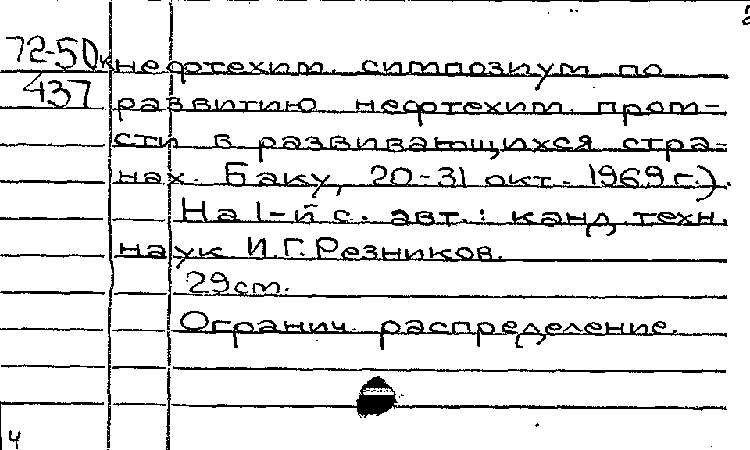 72-50к нефтехим. симпозиум по
437 развитию нефтехим. пром-
сти в развивающихся стра-
нах. Баку, 20-31 окт. 1969 г.).
На 1-й с. авт.: канд. техн.
наук И.Г. Резников.
29 см.
Огранич. распределение.
4